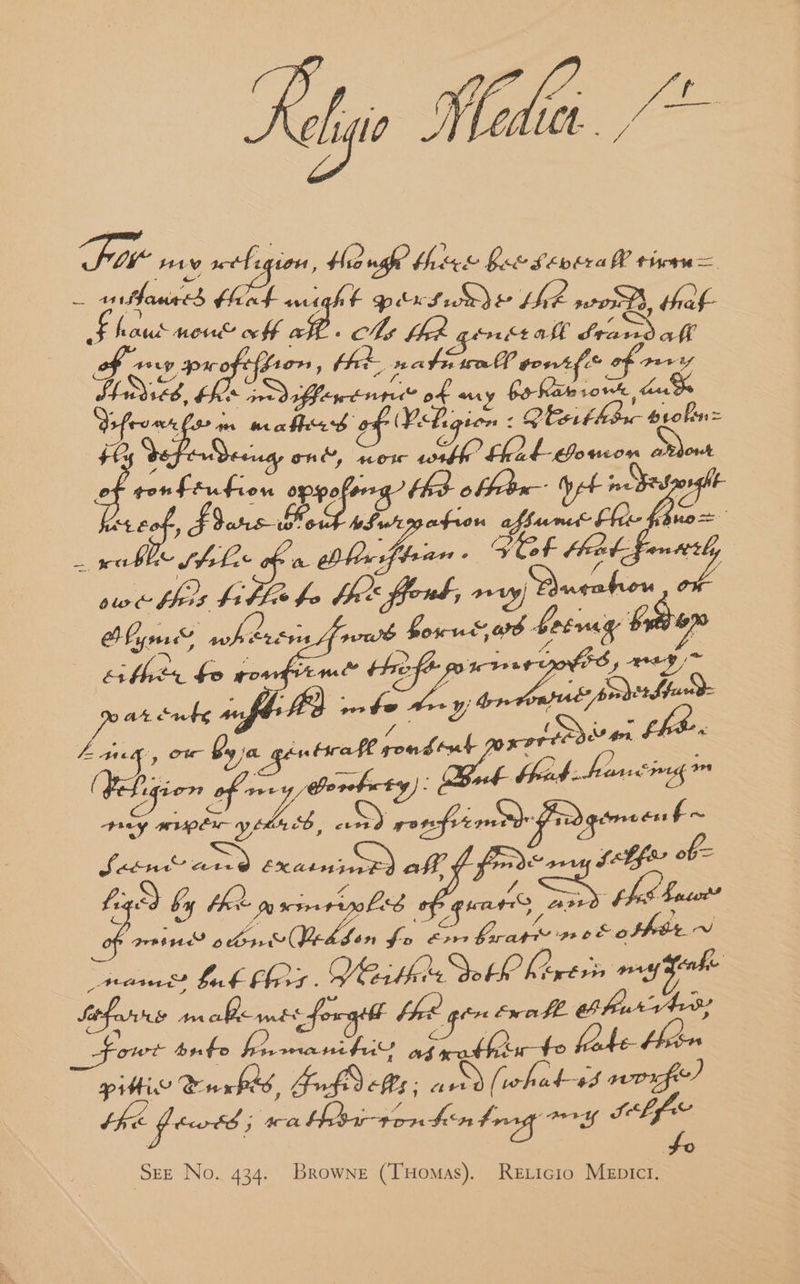 Religio Medici. 1
For my religion, though there bee severall circum=
_ nstances that might perswade the world, that
I haue none att all. As the generall scandall
of my profession, the naturall course of my
studies, the indifferencie of my behauiour, and
discourse in matters of Religion: Neither violen=
tly defending one, nor with that common ardour
of contention opposing the other. Yet in despight
hereof, I dare without vsurpation assume the hono=
_ rable stile of a Christian. Not that I meerely
owe this title to the ffont, my Education, or
Clyme, wherein I was borne, as being bred vp
either to confirme those principles, my
parents instilld into my vnderstand-
ing, or by a generall consent proceede in the
Religion of my Contrey): But that haueing in
my riper yeares, and confirmed Iudgement ~
seene and examined all, I finde my selfe ob=
liged by the principles of grace, and the lawe
of mine owne Reason to embrace no other ~
name but this. Neither doth herein my zeale
so farre make mee forgett the generall Charitie
I owe vnto humanitie, as rather to hate then
pittie Turkes, Infidells; and (what is worse)
the Jewes; rather contenting my selfe
to
See No. 434. Browne (Thomas). Religio Medici.